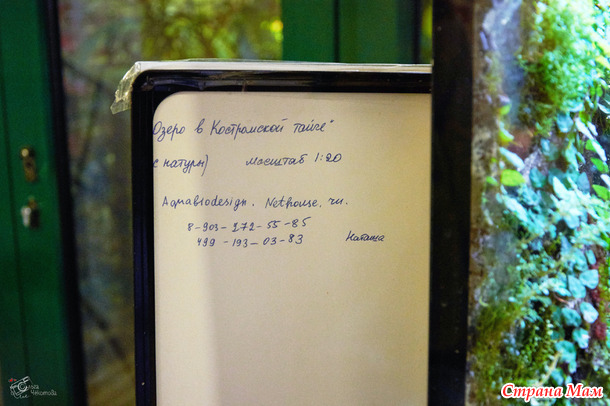 Озеро в Костромской тайге"
с натуры) масштаб 1:20
Aquabiodesign. Nethouse. ru.
8-903-272-55-85
499-193-03-83 Наташа
Страна Мам